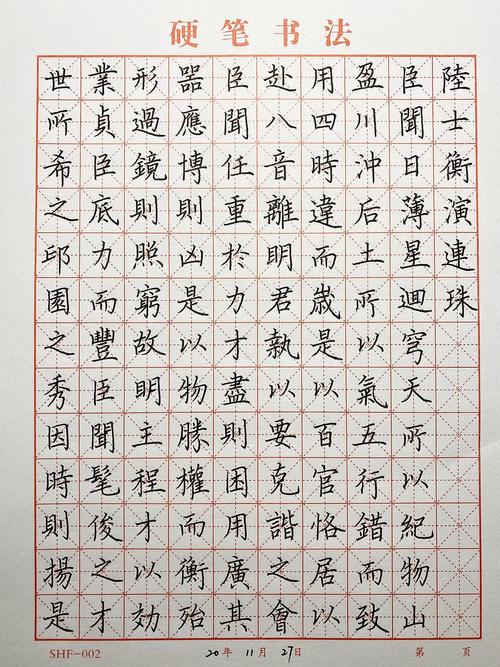 硬笔书法
陸士衡演連珠
臣聞日薄星迴穹天所以紀物山
盈川沖后土所以氣五行錯而致
用四時違而成歲是以百官恪居以
赴八音離明君執以要克諧之會
臣聞任重於力才盡則困用廣其
器應博則凶是以物勝權而衡殆
形過鏡則照窮故明主程才以効
業貞臣底力而豐臣聞髦俊之才
世所希之邱園之秀因時則揚是
SHF-002 20年11月27日 第 页